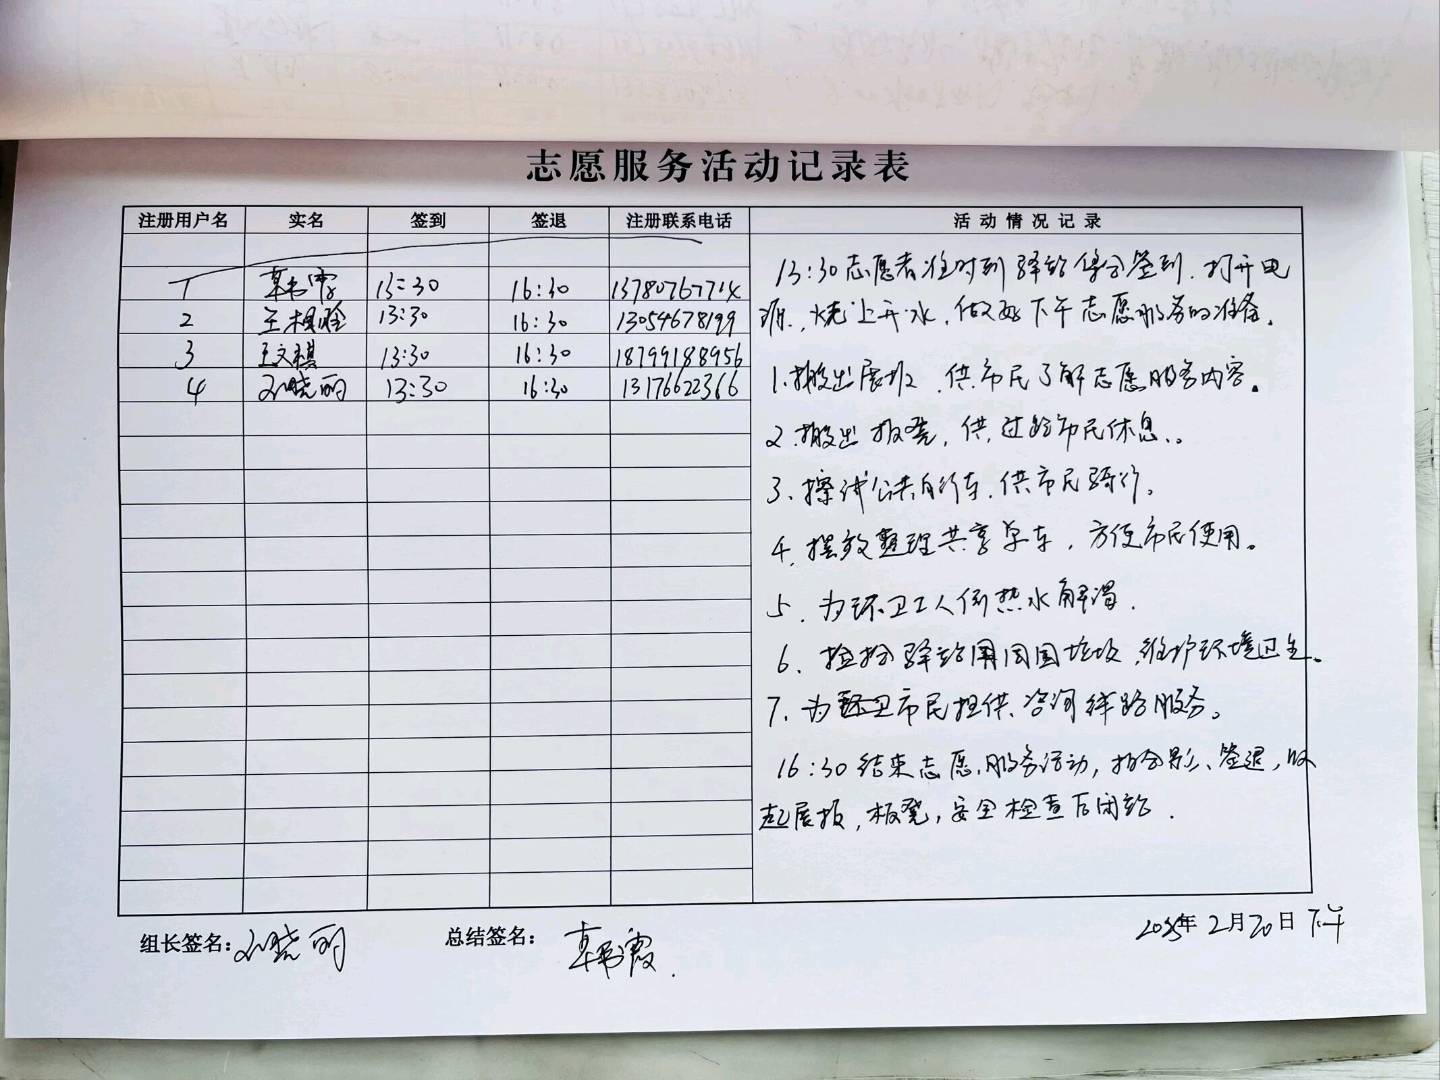 志愿服务活动记录表
注册用户名 实名 签到 签退 注册联系电话 活动情况记录
1 韩霞 13:30 16:30 1378076771X
2 王 13:30 16:30 13054678199
3 王文祺 13:30 16:30 18799188956
4 孙晓丽 13:30 16:30 13176622366
13:30志愿者准时到驿站集合签到.打开电
源,烧上开水,做好下午志愿服务的准备。
1.搬出展板,供市民了解志愿服务内容。
2.搬出板凳,供过路市民休息。
3、擦拭公共自行车,供市民骑行。
4.摆放整理共享单车,方便市民使用。
5.为环卫工人倒热水解渴.
6.捡拾驿站周围垃圾,维护环境卫生。
7.为市民提供咨询线路服务。
16:30结束志愿服务活动,拍合影、签退,收
起展报,板凳,安全检查后闭站.
组长签名:孙晓丽 总结签名:韩霞. 2025年2月20日下午